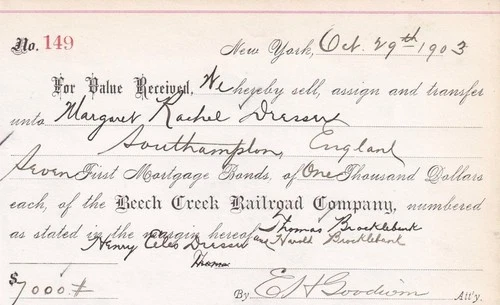 No. 149
New York, Oct. 29th 1903
For Value Received, We hereby sell, assign and transfer
unto Margaret Rachel Dresser
Southampton, England
Seven First Mortgage Bonds, of One Thousand Dollars
each, of the Beech Creek Railroad Company, numbered
as stated in the margin hereof Thomas Brocklebank
Henry Dresser and Harold Brocklebank
Thomas
$7000.#
By E H Goodwin Att'y.